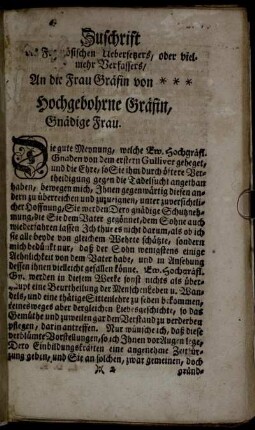 Zuschrift
Frantzösischen Uebersetzers, oder viel-
mehr Verfassers,
An die Frau Gräfin von ***
Hochgebohrne Gräfin,
Gnädige Frau.
Die gute Meynung, welche Ew. Hochgräfl.
Gnaden von dem erstern Gulliver geheget,
und die Ehre, so Sie ihm durch öftere Ver-
theidigung gegen die Tadelsucht angethan
haben, bewegen mich, Ihnen gegenwärtig diesen an-
dern zu überreichen und zuzueignen, unter zuversichtli-
cher Hoffnung, Sie werden Dero gnädige Schutzneh-
mung, die Sie dem Vater gegönnet, dem Sohne auch
wiederfahren lassen. Ich thue es nicht darum, als ob ich
sie alle beyde von gleichem Wehrte schätzte, sondern
mich bedünket, daß der Sohn wenigstens einige
Aehnlichkeit von dem Vater habe, und in Ansehung
dessen ihnen vielleicht gefallen könne. Ew. Hochgräfl.
Gn. werden in diesem Werke sonst nichts als über-
haupt eine Beurtheilung der Menschen Leben u. Wan-
dels, und eine thätige Sittenlehre zu sehen bekommen,
keinesweges aber dergleichen Liebesgeschichte, so das
Gemüthe und zuweilen gar den Verstand zu verderben
pflegen, darin antreffen. Nur wünsche ich, daß diese
verblümte Vorstellungen, so ich Ihnen vor Augen lege,
Dero Einbildungskräften eine angenehme Zeitkür-
zung geben, und Sie an solchen, zwar gemeinen, doch
gründ-